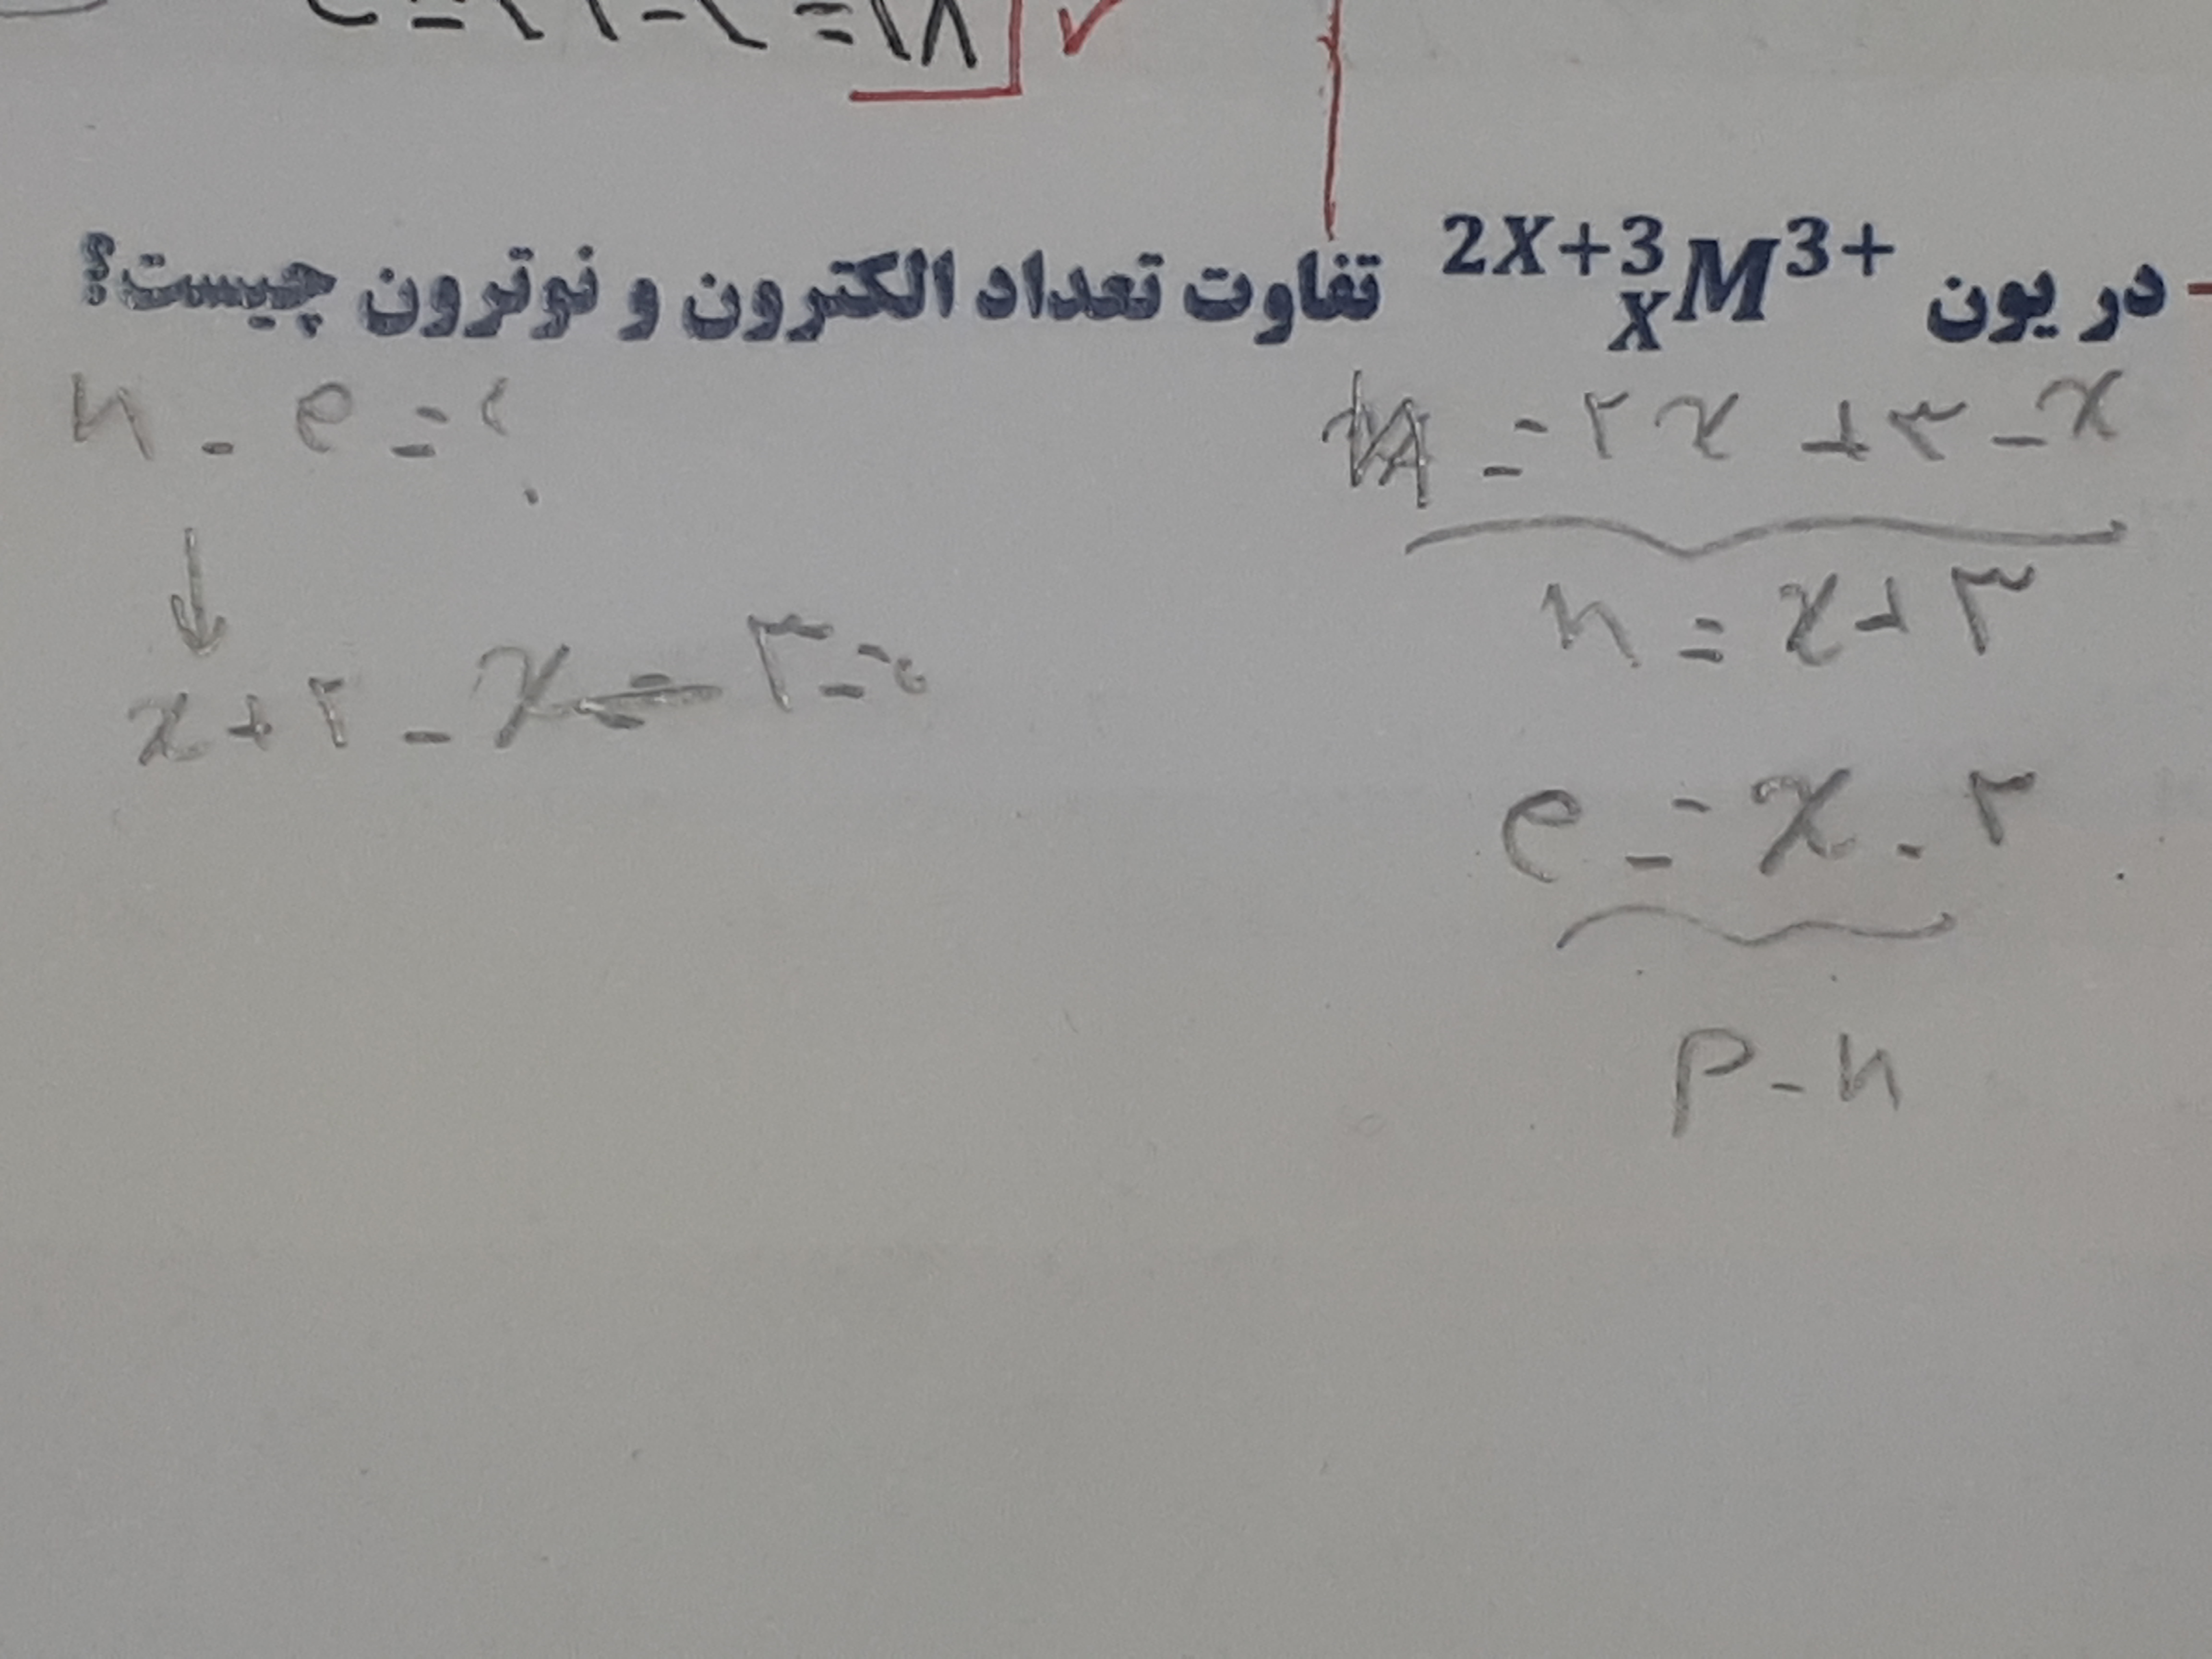 = ۱۸
در یون ^{2X+3}_{X}M^{3+} تفاوت تعداد الکترون و نوترون چیست؟
n - e = ؟
= ۲x + ۳ - x
n = x + ۳
x + ۳ - x ۳ = ۰
e = x - ۳
p - n